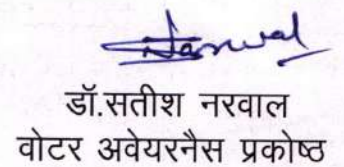 डॉ.सतीश नरवाल
वोटर अवेयरनैस प्रकोष्ठ